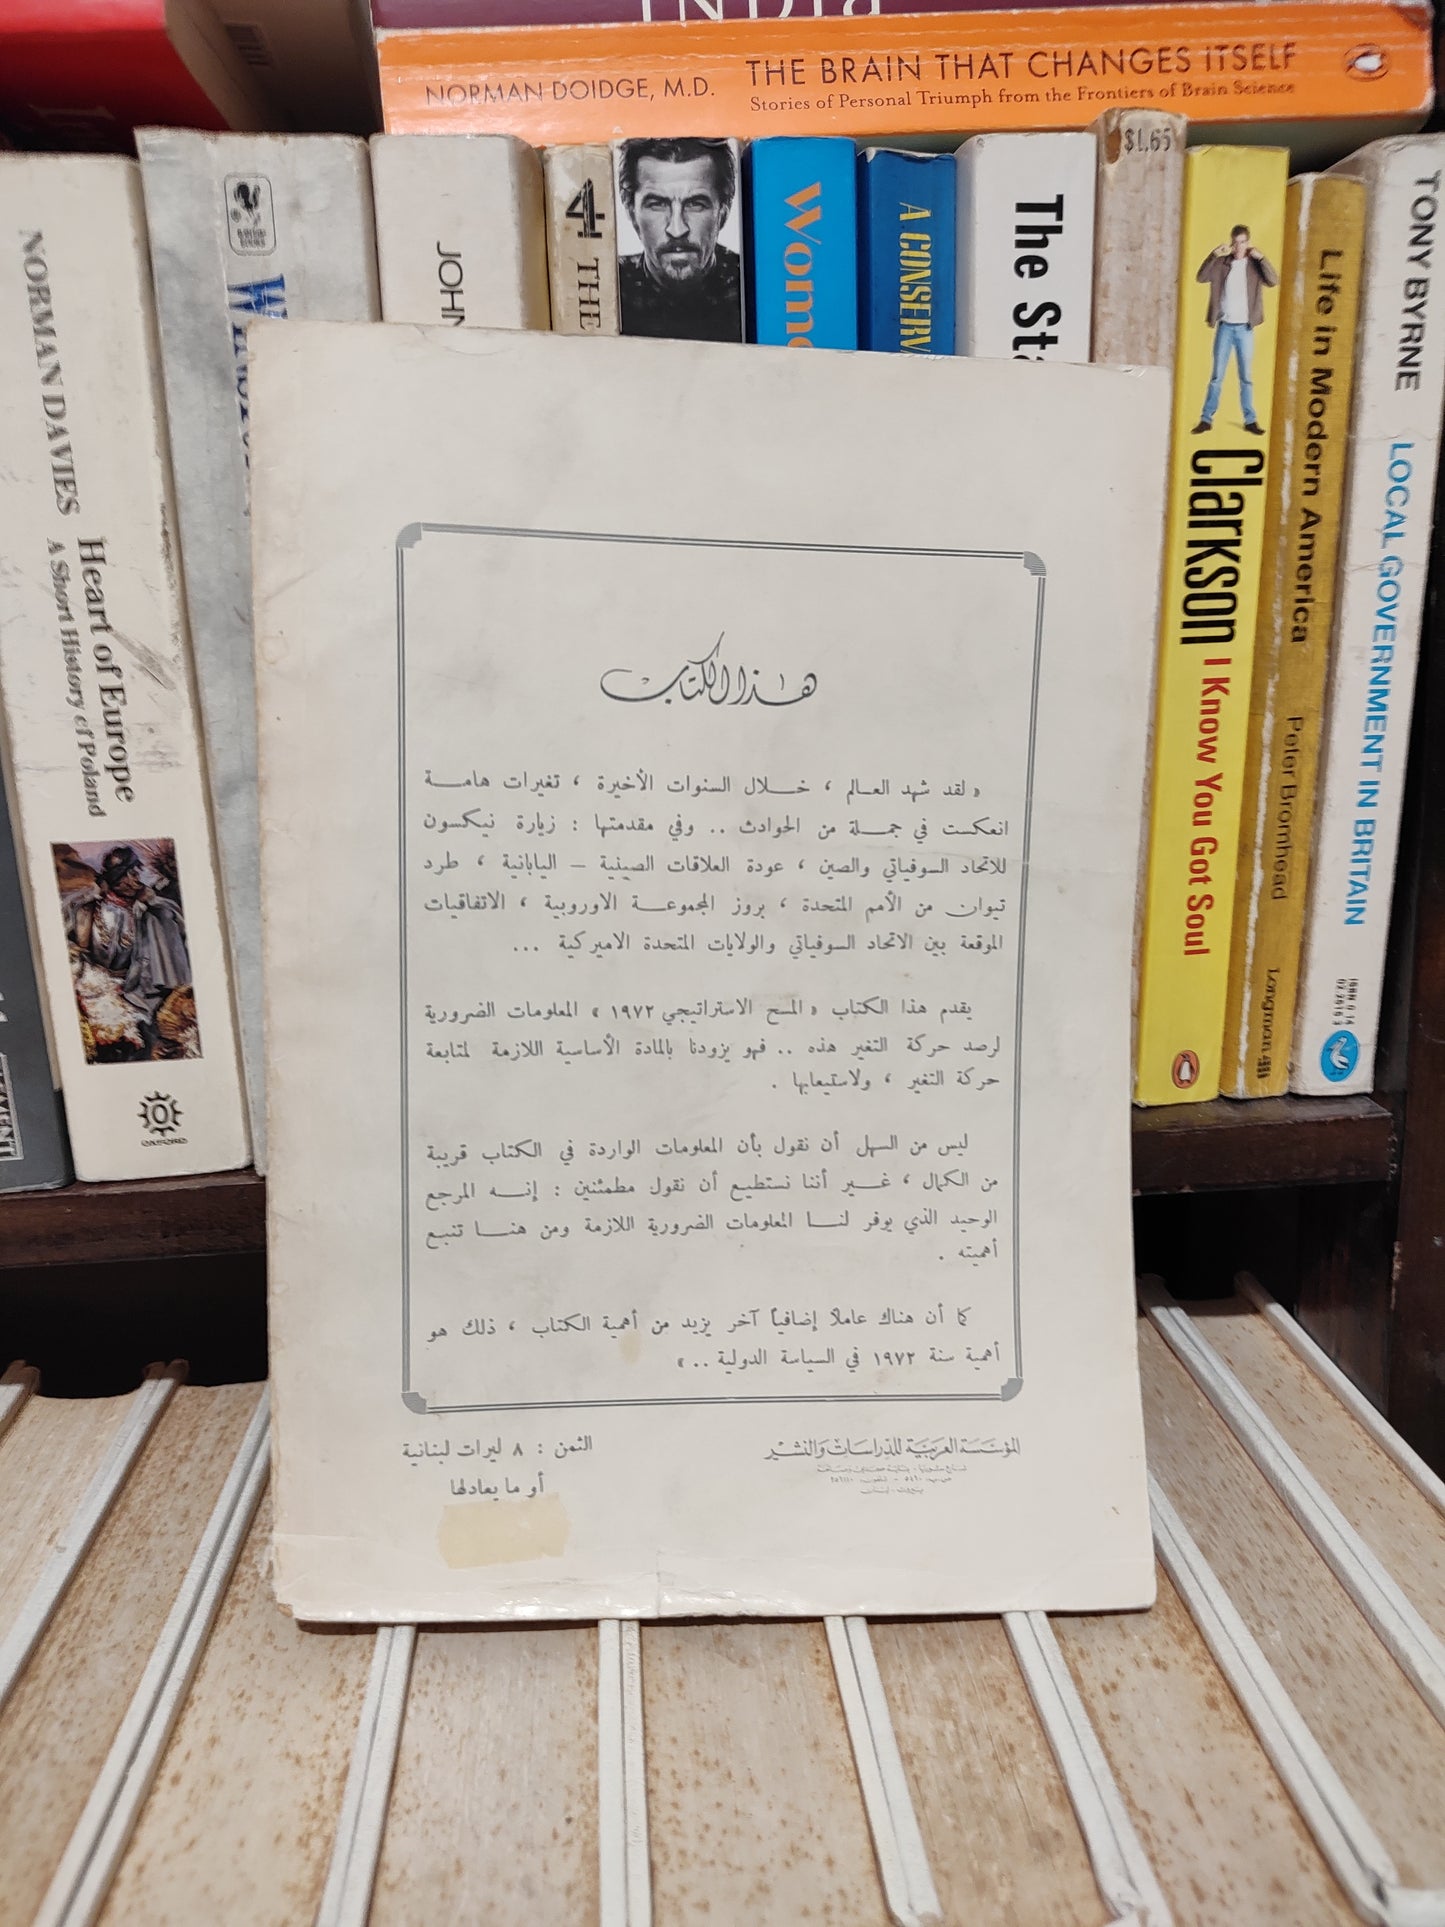 INDIA
NORMAN DOIDGE, M.D. THE BRAIN THAT CHANGES ITSELF
Stories of Personal Triumph from the Frontiers of Brain Science
NORMAN DAVIES Heart of Europe
A Short History of Poland
OXFORD
JOHN
4
THE
A CONSERV
The
$1.65
Clarkson I Know You Got Soul
Life in Modern America Peter Bromhead Longman
TONY BYRNE LOCAL GOVERNMENT IN BRITAIN
هذا الكتاب
« لقد شهد العـالم ، خـلال السنوات الأخيرة ، تغيرات هامـة
انعكست في جمـلة من الحوادث .. وفي مقدمتها : زيارة نيكسون
للاتحاد السوفياتي والصين ، عودة العلاقات الصينية – اليابانية ، طرد
تيوان من الأمم المتحدة ، بروز المجموعـة الاوروبية ، الاتفاقيات
الموقعة بين الاتحاد السوفياتي والولايات المتحدة الاميركية ...
يقدم هذا الكتاب « المسح الاستراتيجي ١٩٧٢ » المعلومات الضرورية
لرصد حركة التغير هذه .. فهو يزودنا بالمادة الأساسية اللازمة لمتابعة
حركة التغير ، ولاستيعابها .
ليس من السهل أن نقول بأن المعلومات الواردة في الكتاب قريبة
من الكمال ، غـير أننا نستطيع أن نقول مطمئنين : إنـه المرجع
الوحيد الذي يوفر لنـا المعلومات الضرورية اللازمة ومن هنـا تنبع
أهميته .
كما أن هناك عاملاً إضافياً آخر يزيد من أهمية الكتاب ، ذلك هو
أهمية سنة ١٩٧٢ في السياسة الدولية .. »
المؤسسة العربية للدراسات والنشر
الثمن : ٨ ليرات لبنانية
أو ما يعادلها